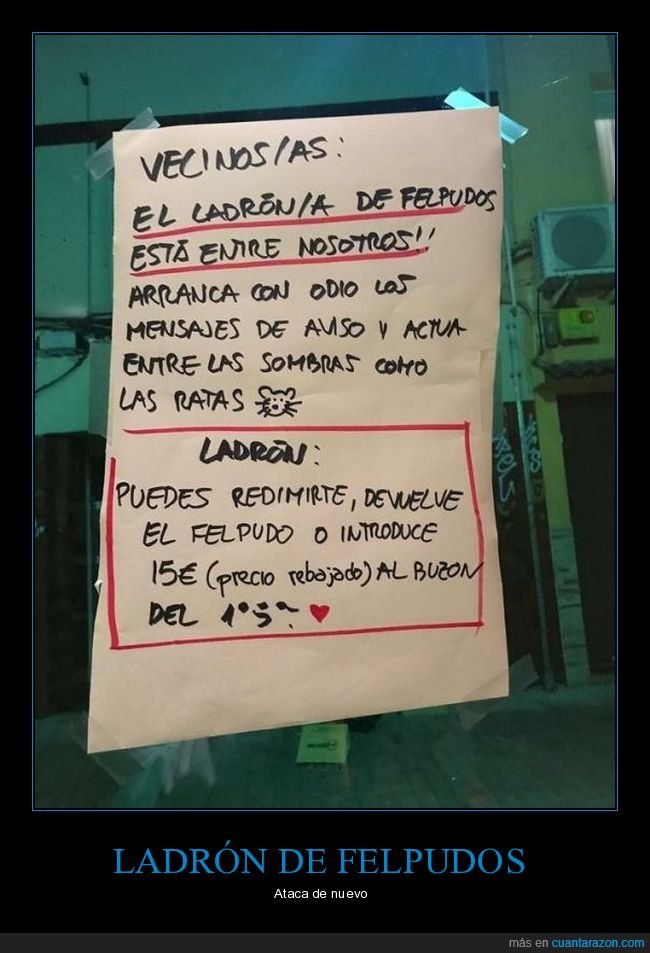 VECINOS/AS:
EL LADRÓN/A DE FELPUDOS
ESTÁ ENTRE NOSOTROS!!
ARRANCA CON ODIO LOS
MENSAJES DE AVISO Y ACTUA
ENTRE LAS SOMBRAS COMO
LAS RATAS
LADRÓN:
PUEDES REDIMIRTE, DEVUELVE
EL FELPUDO O INTRODUCE
15€ (precio rebajado) AL BUZON
DEL 1º 5ª. ♥
LADRÓN DE FELPUDOS
Ataca de nuevo
más en cuantarazon.com